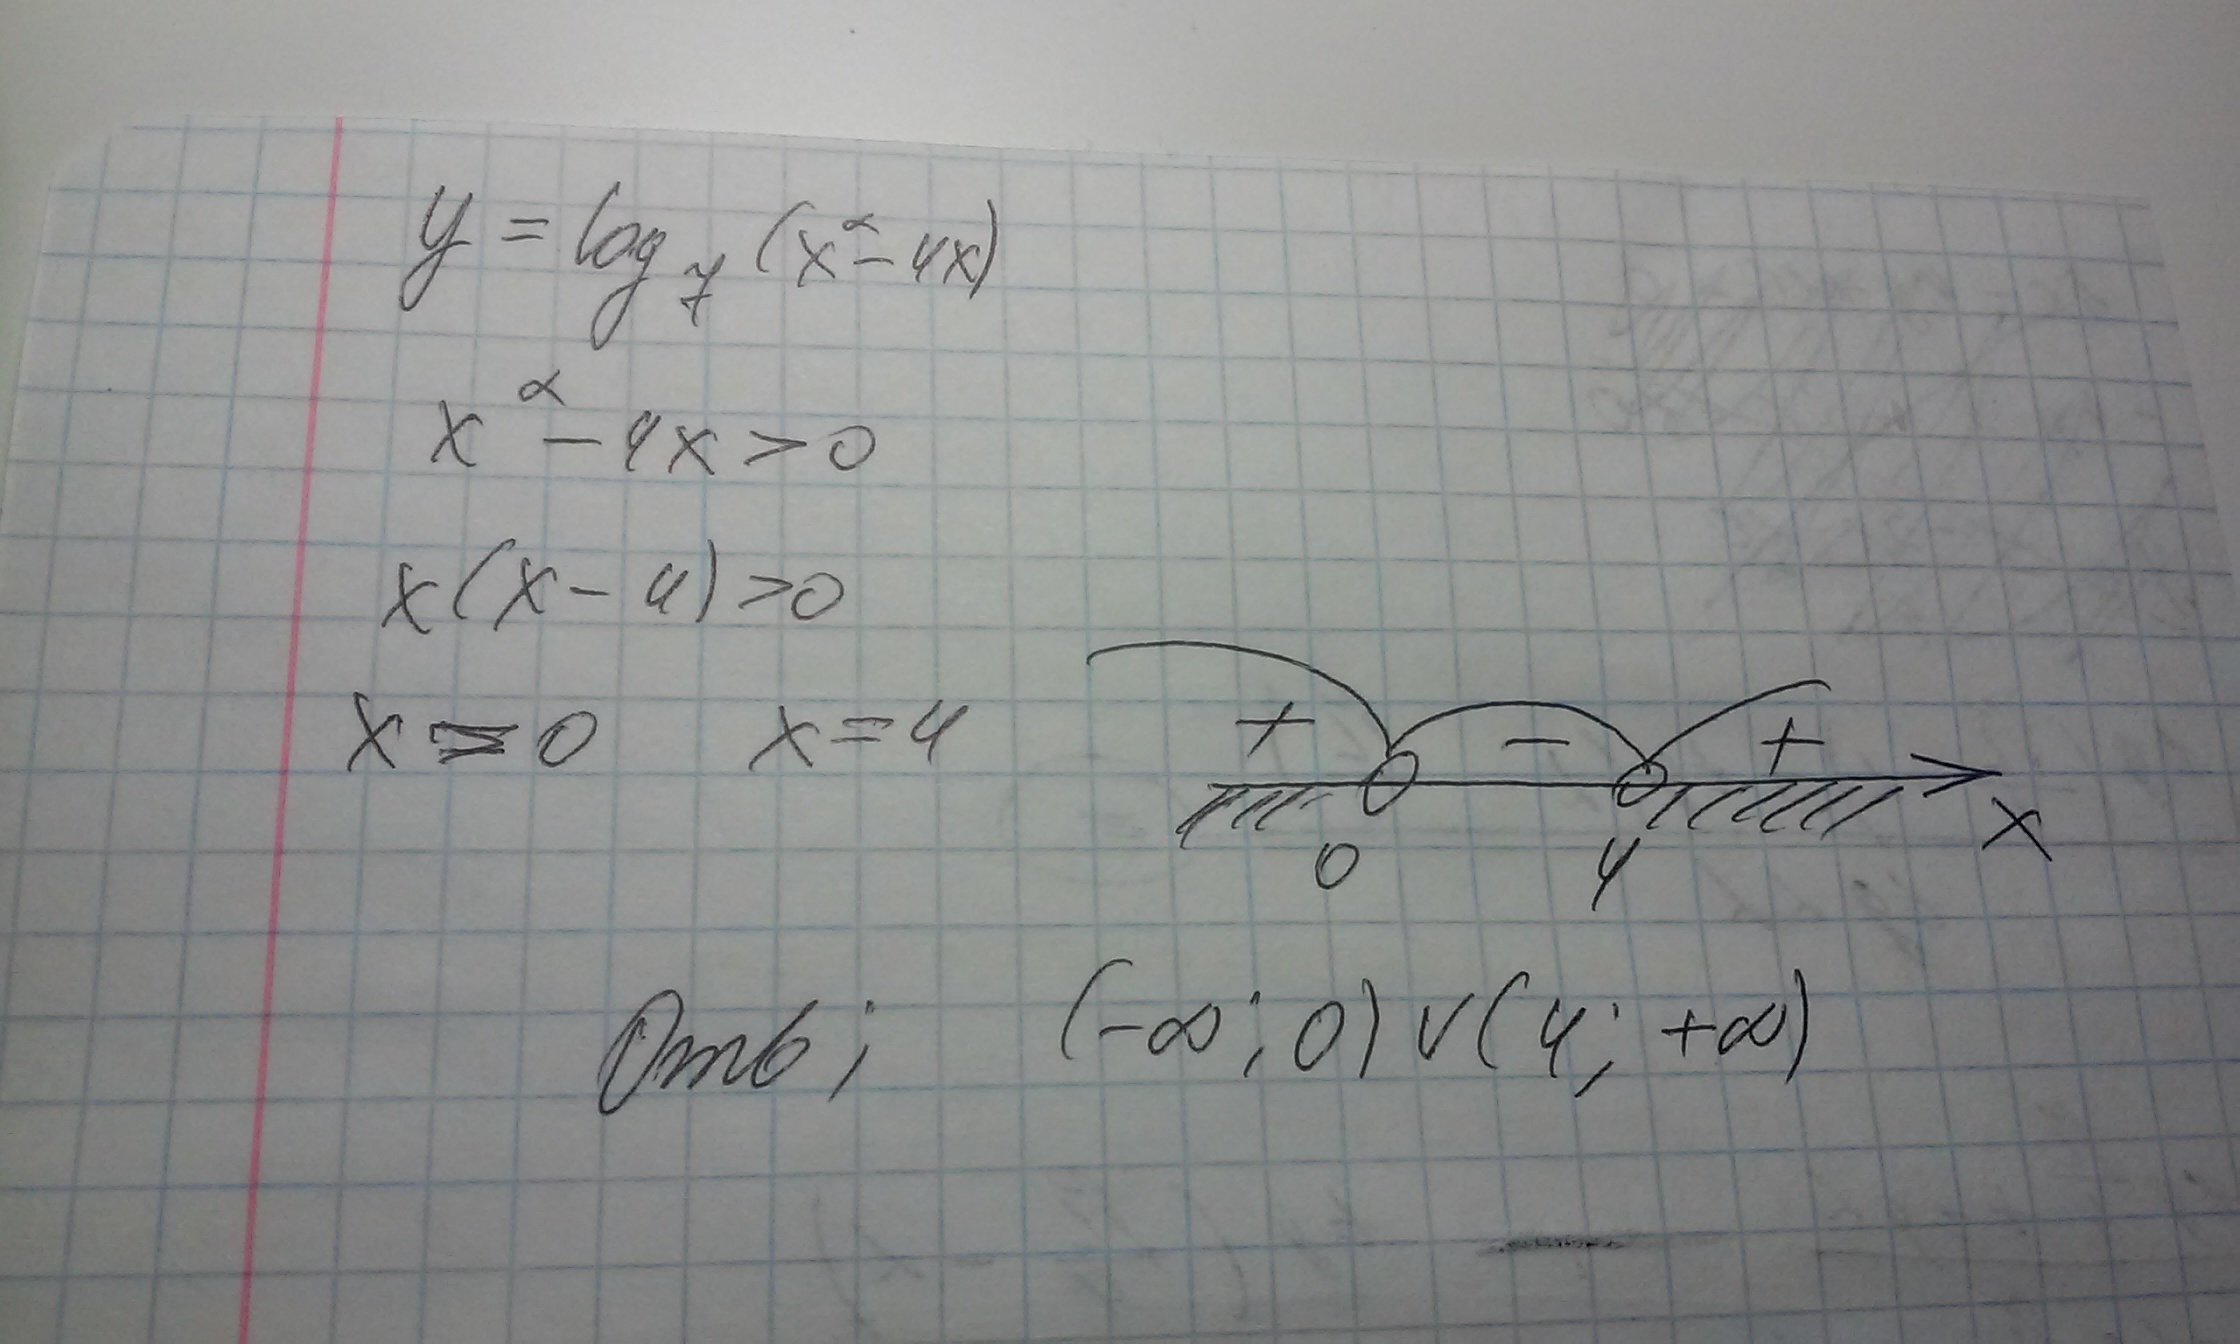 y = log₇ (x² - 4x)
x² - 4x > 0
x(x - 4) > 0
x = 0 x = 4
+ - +
0 4 x
Отв; (-∞; 0) ∨ (4; +∞)